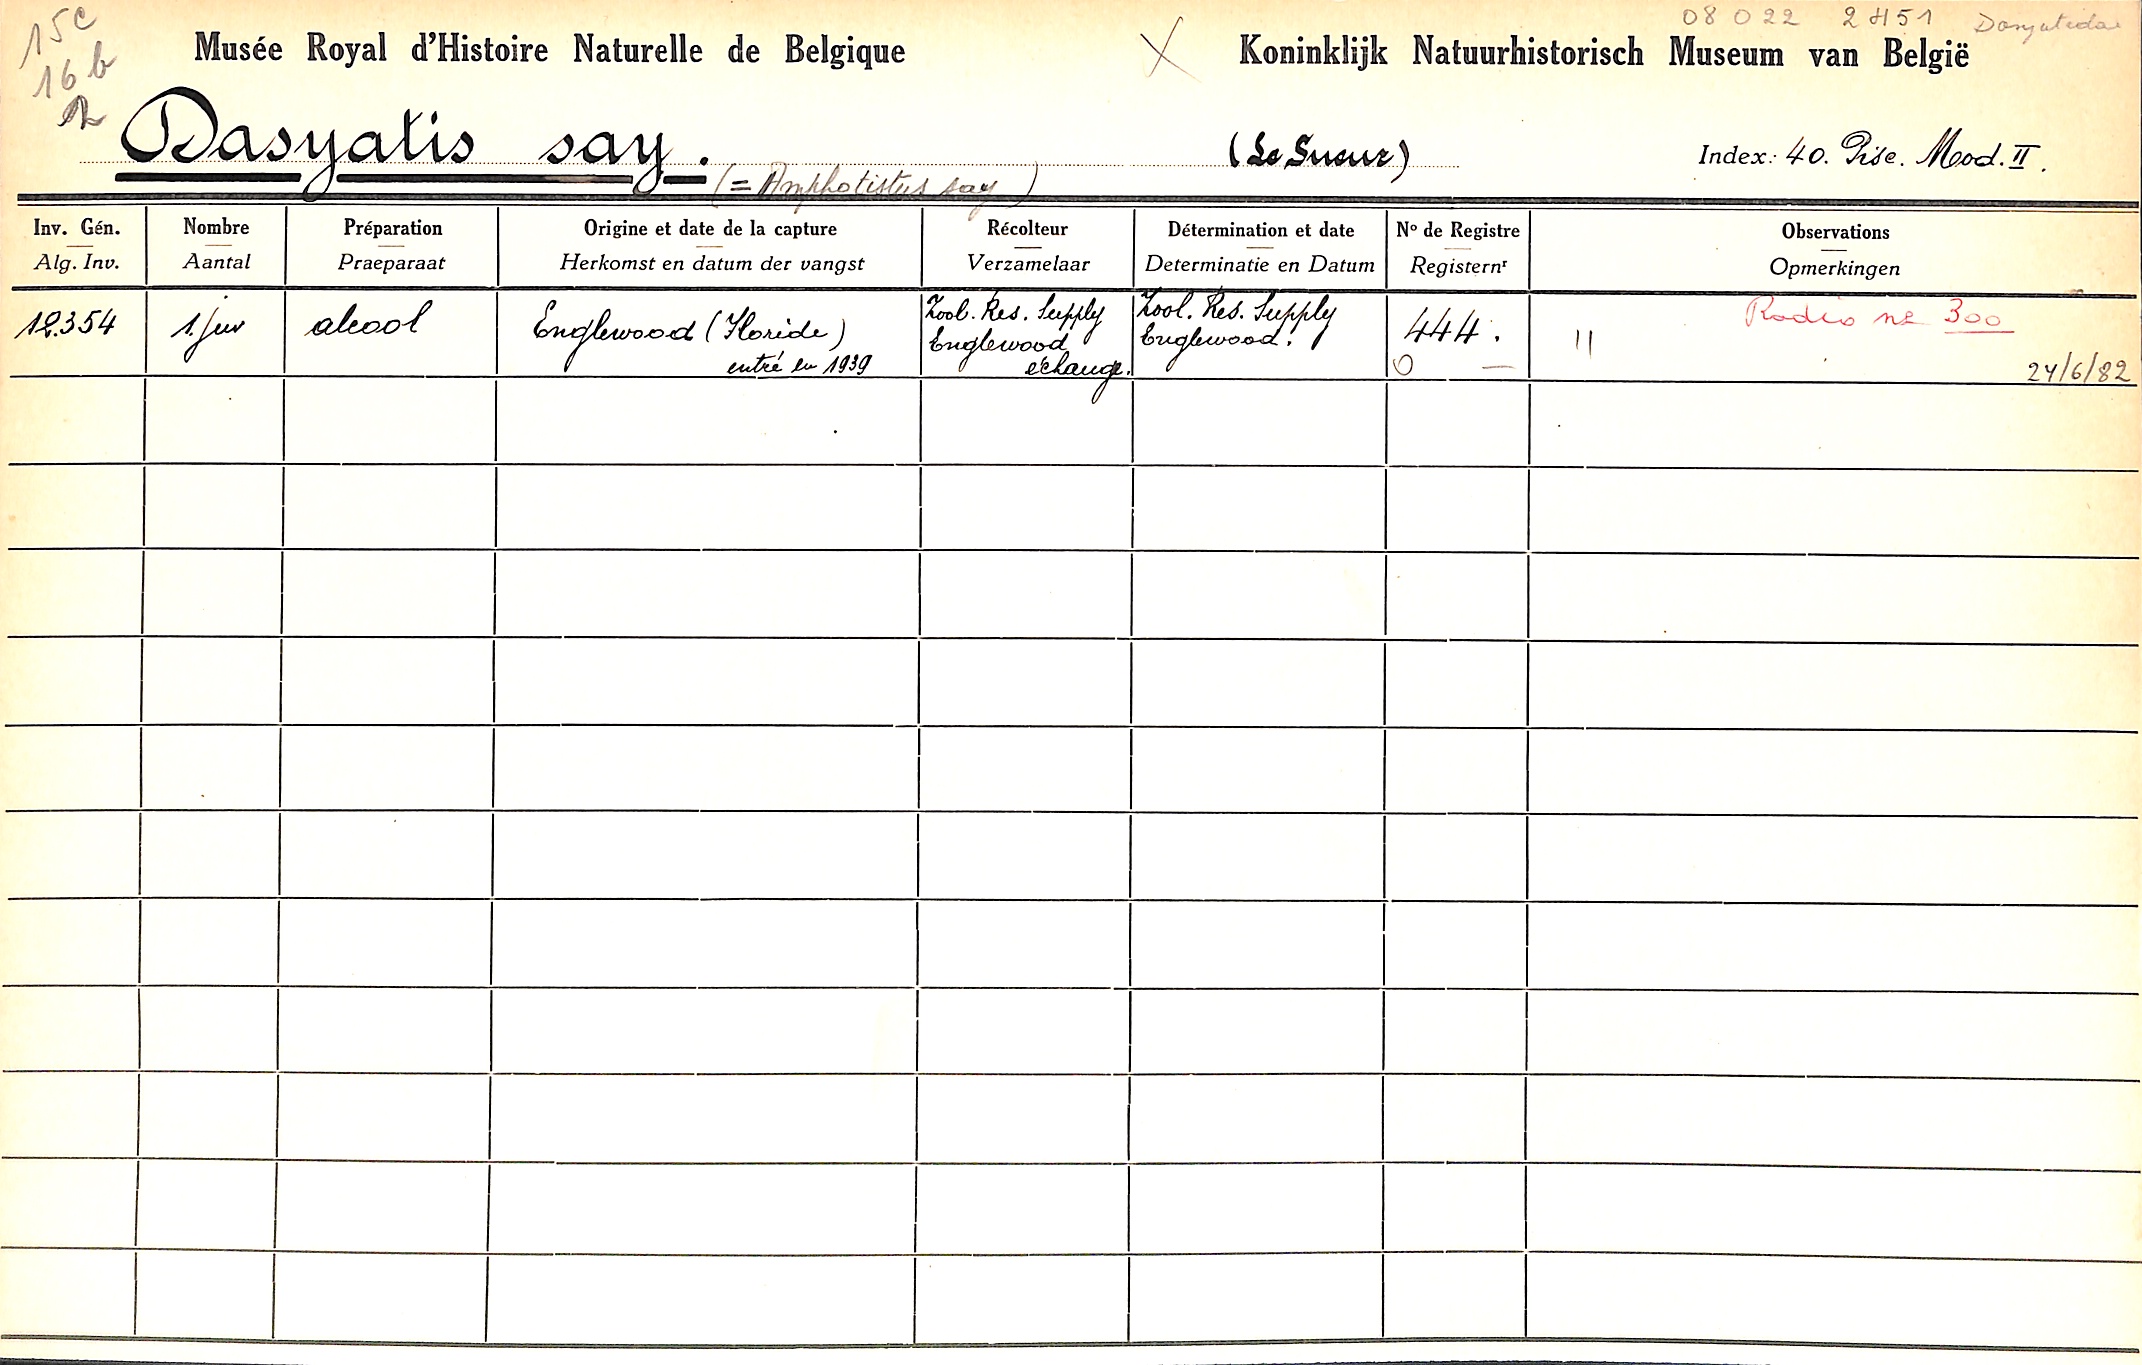 15c
16 b
08 022 2451 Dasyatidae
Musée Royal d'Histoire Naturelle de Belgique X Koninklijk Natuurhistorisch Museum van België
Dasyatis say. (Le Sueur) Index: 40. Pisc. Mod. II.
(= Amphotistus say)
Inv. Gén. Nombre Préparation Origine et date de la capture Récolteur Détermination et date Nº de Registre Observations
Alg. Inv. Aantal Praeparaat Herkomst en datum der vangst Verzamelaar Determinatie en Datum Registernr Opmerkingen
12.354 1. juv alcool Englewood (Floride) Zool. Res. Supply Zool. Res. Supply 444. " Radio nº 300
Englewood Englewood.
entré en 1939 échange. 0 — 24/6/82